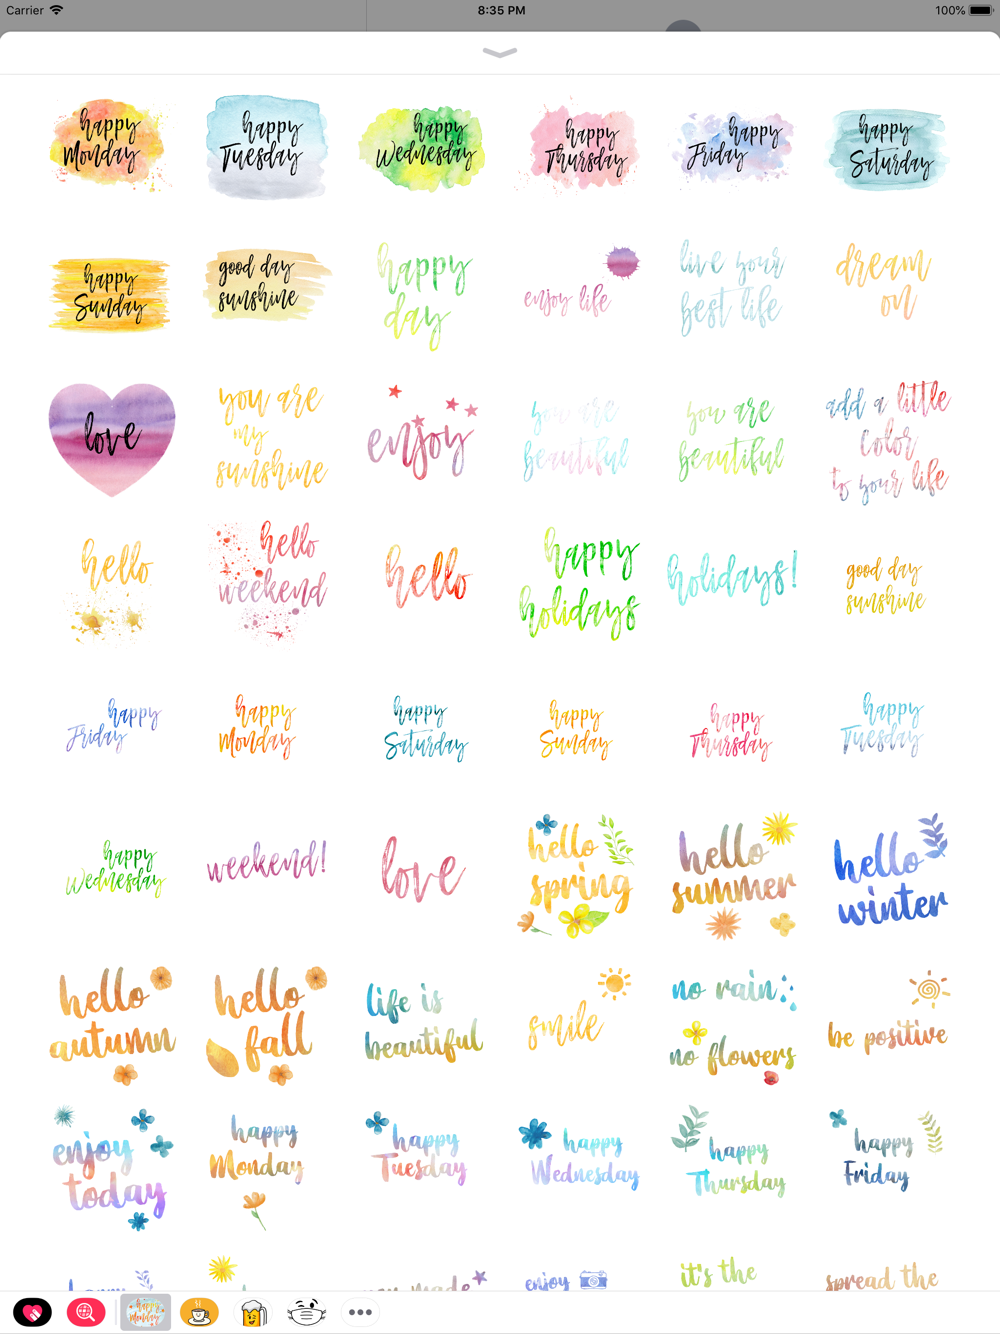 Carrier
8:35 PM
100%
happy
Monday
happy
Tuesday
happy
Wednesday
happy
Thursday
happy
Friday
happy
Saturday
happy
Sunday
good day
sunshine
happy
day
enjoy life
live your
best life
dream
on
love
you are
my
sunshine
enjoy
you are
beautiful
you are
beautiful
add a little
color
to your life
hello
hello
weekend
hello
happy
holidays
holidays!
good day
sunshine
happy
Friday
happy
Monday
happy
Saturday
happy
Sunday
happy
Thursday
happy
Tuesday
happy
Wednesday
weekend!
love
hello
spring
hello
summer
hello
winter
hello
autumn
hello
fall
life is
beautiful
smile
no rain
no flowers
be positive
enjoy
today
happy
Monday
happy
Tuesday
happy
Wednesday
happy
Thursday
happy
Friday
made
enjoy
it's the
spread the
happy
Monday